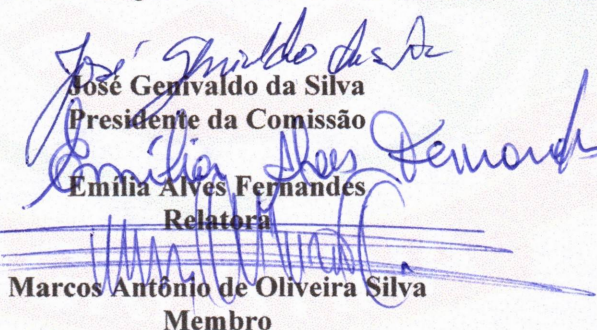 José Genivaldo da Silva
José Genivaldo da Silva
Presidente da Comissão
Emília Alves Fernandes
Emília Alves Fernandes
Relatora
Marcos Antônio de Oliveira Silva
Membro